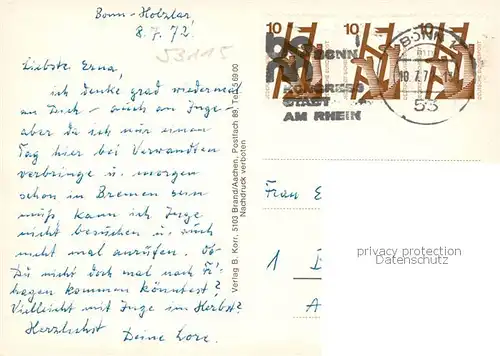 Bonn-Holzlar,
8.7.72.
53115
Liebste Erna,
ich denke grad wiedermal
an Dich - auch an Inge
aber da ich nur einen
Tag hier bei Verwandten
verbringe u. morgen
schon in Bremen sein
muß, kann ich Inge
nicht besuchen u. auch
nicht mal anrufen. Ob
Du nicht doch mal nach
hagen kommen könntest?
Vielleicht mit Inge im Herbst?
Herzlichst
Deine Lore.
Verlag B. Korr, 5103 Brand/Aachen, Postfach 89, Tel. 3 69 00
Nachdruck verboten
10
10
10
BONN
KONGRESS
STADT
AM RHEIN
BONN
53
Frau E
1
privacy protection
www.ansichtskarten-center.de